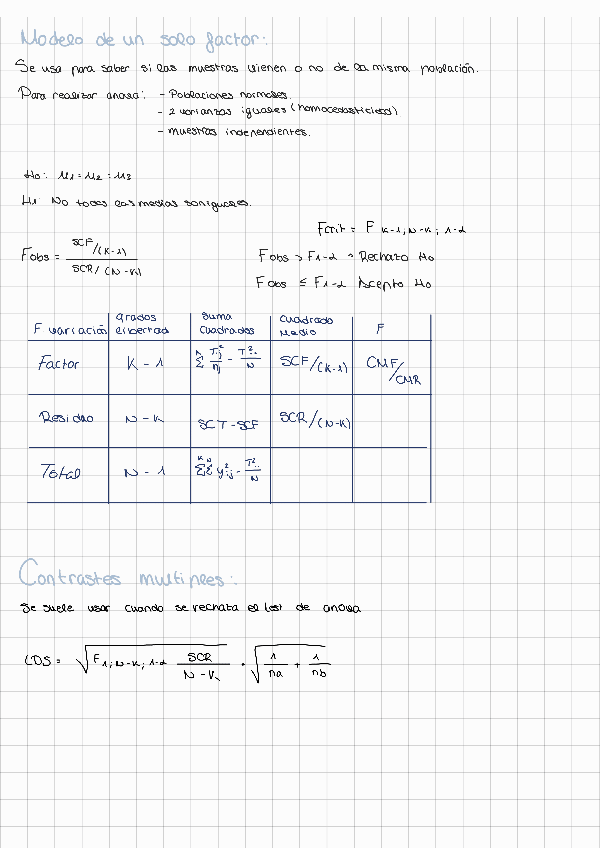 Modelo de un solo factor:
Se usa para saber si las muestras vienen o no de la misma población.
Para realizar anova: - Poblaciones normales.
- 2 varianzas iguales (homocedasticidad)
- muestras independientes.
H0: μ1 = μ2 = μ3
H1: No todas las medias son iguales.
Fcrit = F K-1, N-K; 1-α
Fobs = SCF/(K-1) / SCR/(N-K)
Fobs > F1-α → Rechazo H0
Fobs ≤ F1-α Acepto H0
F variación | grados libertad | suma cuadrados | cuadrado medio | F
Factor | K - 1 | Σ Tj²/nj - T²../N | SCF/(K-1) | CMF/CMR
Residuo | N - K | SCT - SCF | SCR/(N-K)
Total | N - 1 | ΣΣ y²ij - T²../N
Contrastes multiples:
Se suele usar cuando se rechaza el test de anova
LDS = √(F1; N-K; 1-α SCR/N-K) · √(1/na + 1/nb)